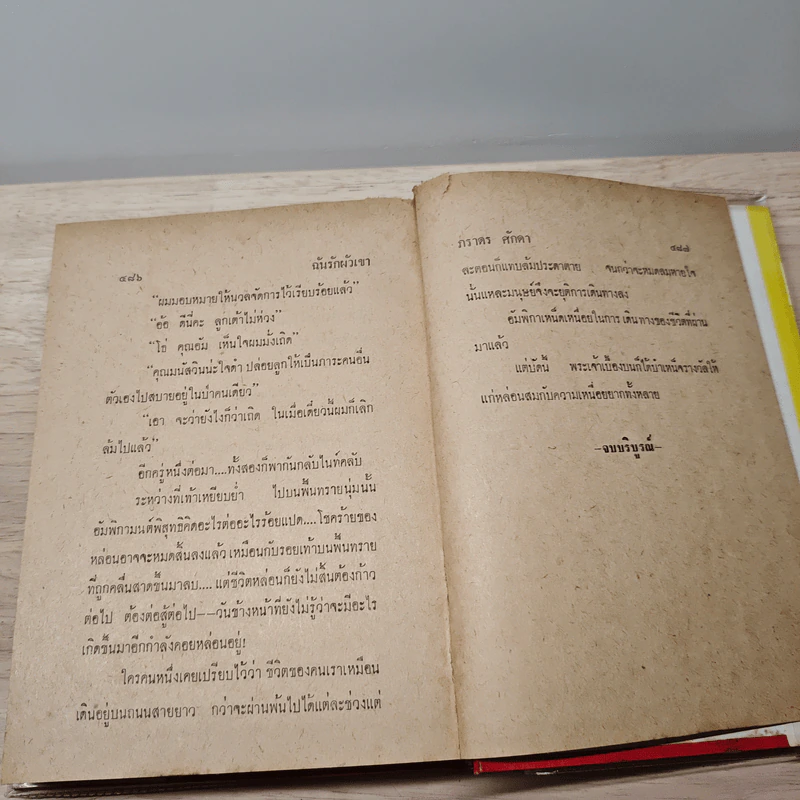 ๔๘๖
ฉันรักผัวเขา
“ผมมอบหมายให้นวลจัดการไว้เรียบร้อยแล้ว”
“อ้อ ดีนี่คะ ลูกเต้าไม่ห่วง”
“โธ่ คุณอัม เห็นใจผมมั่งเถิด”
“คุณมนัสวินน่ะใจดำ ปล่อยลูกให้เป็นภาระคนอื่น
ตัวเองไปสบายอยู่ในป่าคนเดียว”
“เอา จะว่ายังไงก็ว่าเถิด ในเมื่อเดี๋ยวนี้ผมก็เลิก
ล้มไปแล้ว”
อีกครู่หนึ่งต่อมา....ทั้งสองก็พากันกลับไนท์คลับ
ระหว่างที่เท้าเหยียบย่ำ ไปบนพื้นทรายนุ่มนั้น
อัมพิกามนต์พิสุทธิ์คิดอะไรต่ออะไรร้อยแปด....โชคร้ายของ
หล่อนอาจจะหมดสิ้นลงแล้ว เหมือนกับรอยเท้าบนพื้นทราย
ที่ถูกคลื่นสาดขึ้นมาลบ.... แต่ชีวิตหล่อนก็ยังไม่สิ้นต้องก้าว
ต่อไป ต้องต่อสู้ต่อไป——วันข้างหน้าที่ยังไม่รู้ว่าจะมีอะไร
เกิดขึ้นมาอีกกำลังคอยหล่อนอยู่!
ใครคนหนึ่งเคยเปรียบไว้ว่า ชีวิตของคนเราเหมือน
เดินอยู่บนถนนสายยาว กว่าจะผ่านพ้นไปได้แต่ละช่วงแต่
ภราดร ศักดา
๔๘๗
ละตอนก็แทบล้มประดาตาย จนกว่าจะหมดลมหายใจ
นั้นแหละมนุษย์จึงจะยุติการเดินทางลง
อัมพิกาเหน็ดเหนื่อยในการ เดินทางของชีวิตที่ผ่าน
มาแล้ว
แต่บัดนี้ พระเจ้าเบื้องบนก็ได้บำเหน็จรางวัลให้
แก่หล่อนสมกับความเหนื่อยยากทั้งหลาย
–จบบริบูรณ์–